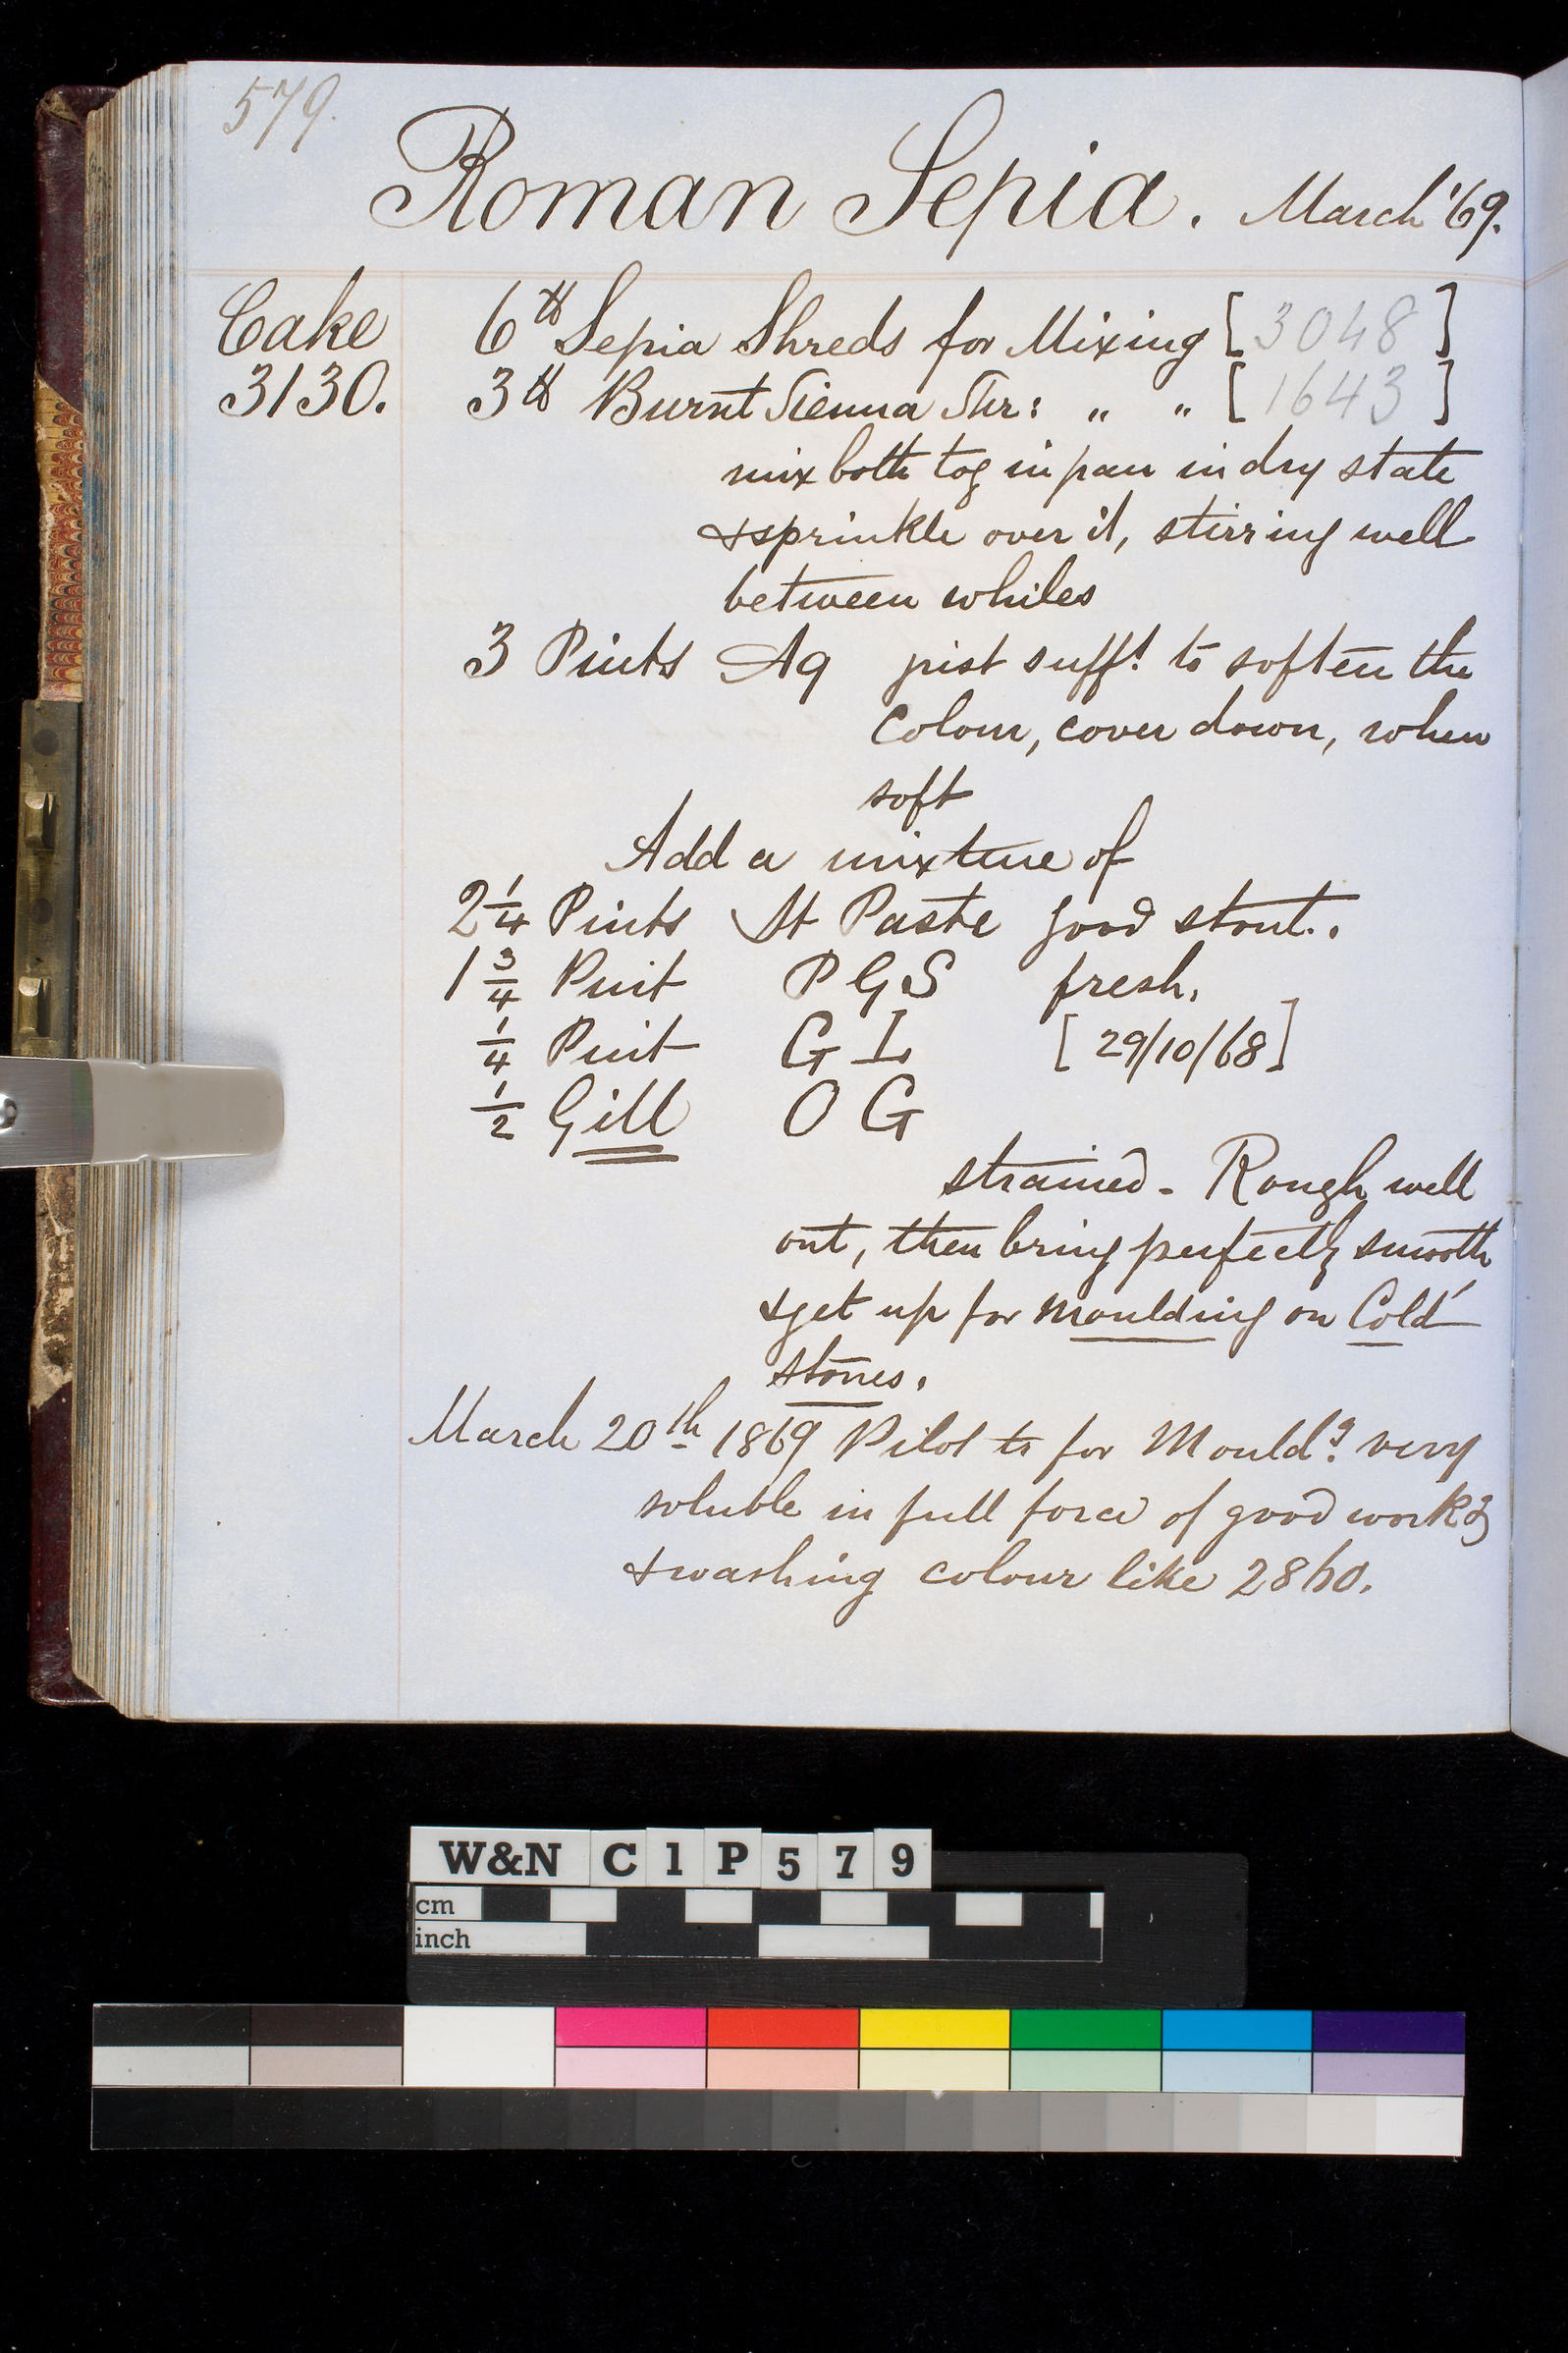 579.
Roman Sepia. March '69.
Cake 6 lb Sepia Shreds for Mixing [3048]
3130. 3 lb Burnt Sienna Shr: " " [1643]
mix both tog in pan in dry state
& sprinkle over it, stirring well
between whiles
3 Pints Aq just sufft to soften the
Colour, cover down, when
soft
Add a mixture of
2 1/4 Pints St Paste good stout.
1 3/4 Pint P G S fresh.
1/4 Pint G L [29/10/68]
1/2 Gill O G
strained - Rough well
out, then bring perfectly smooth
& get up for Moulding on Cold
stones.
March 20th 1869 Pilot tr for Mouldg very
soluble in full force of good workg
& washing colour like 2860.
W&N C1P579
cm
inch